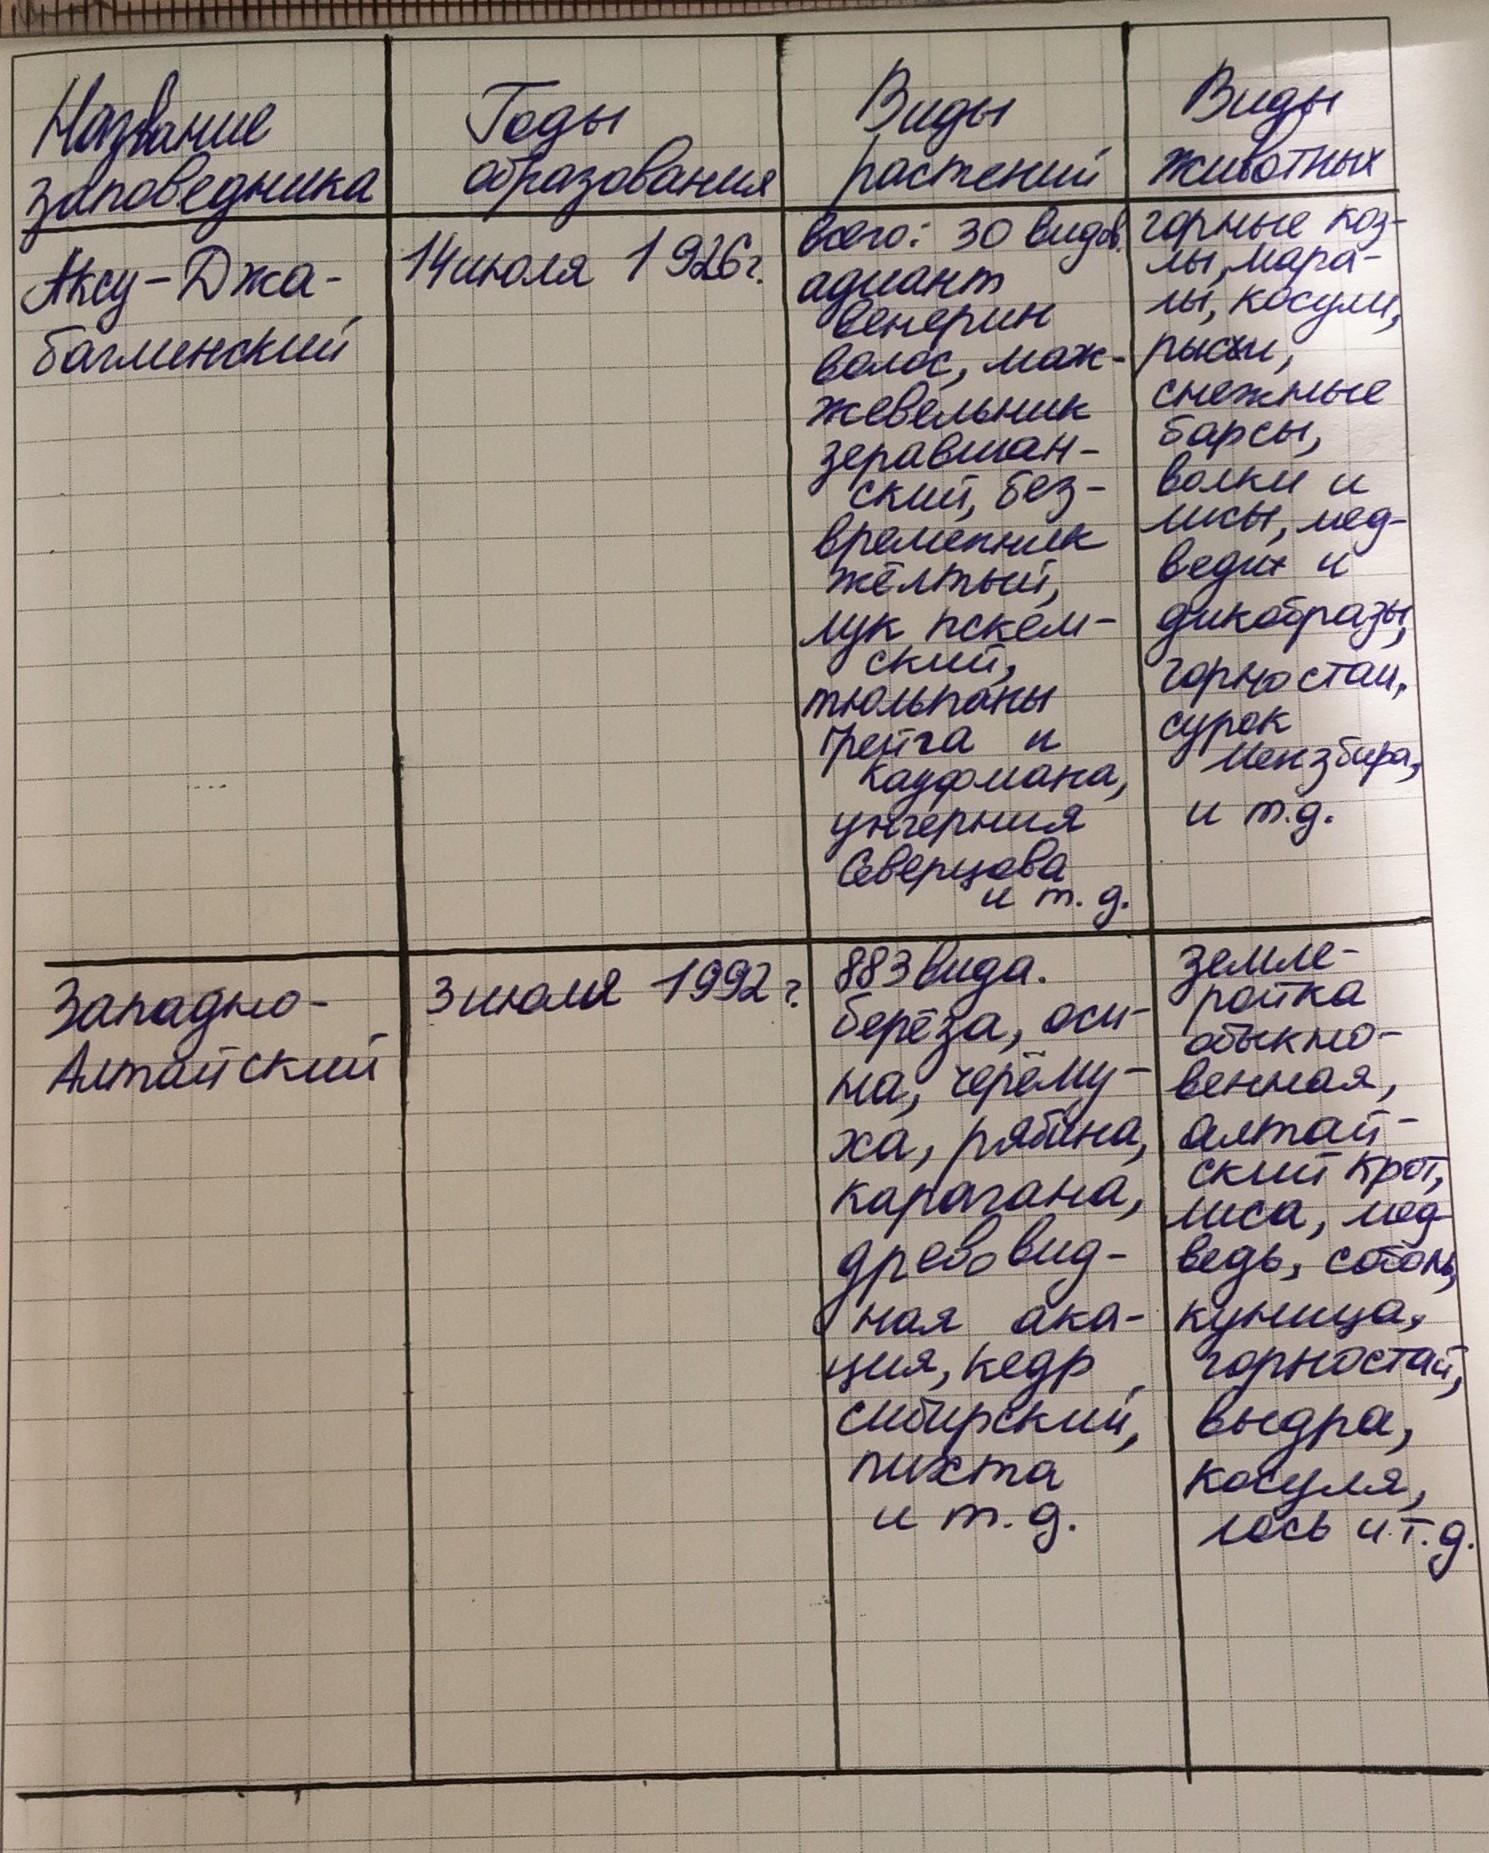 Название
заповедника
Годы
образования
Виды
растений
Виды
животных
Аксу-Джа-
баглинский
14 июля 1926 г.
всего: 30 видов.
адиант
венерин
волос, мож-
жевельник
зеравшан-
ский, без-
временник
жёлтый,
лук пскем-
ский,
тюльпаны
Грейга и
Кауфмана,
унгерния
Северцова
и т. д.
горные коз-
лы, мара-
лы, косули,
рыси,
снежные
барсы,
волки и
лисы, мед-
веди и
дикобразы,
горностаи,
сурок
Мензбира,
и т.д.
Западно-
Алтайский
3 июля 1992 г.
883 вида.
берёза, оси-
на, черёму-
ха, рябина,
карагана,
древовид-
ная ака-
ция, кедр
сибирский,
пихта
и т. д.
земле-
ройка
обыкно-
венная,
алтай-
ский крот,
лиса, мед-
ведь, соболь,
куница,
горностай,
выдра,
косуля,
лось и т. д.